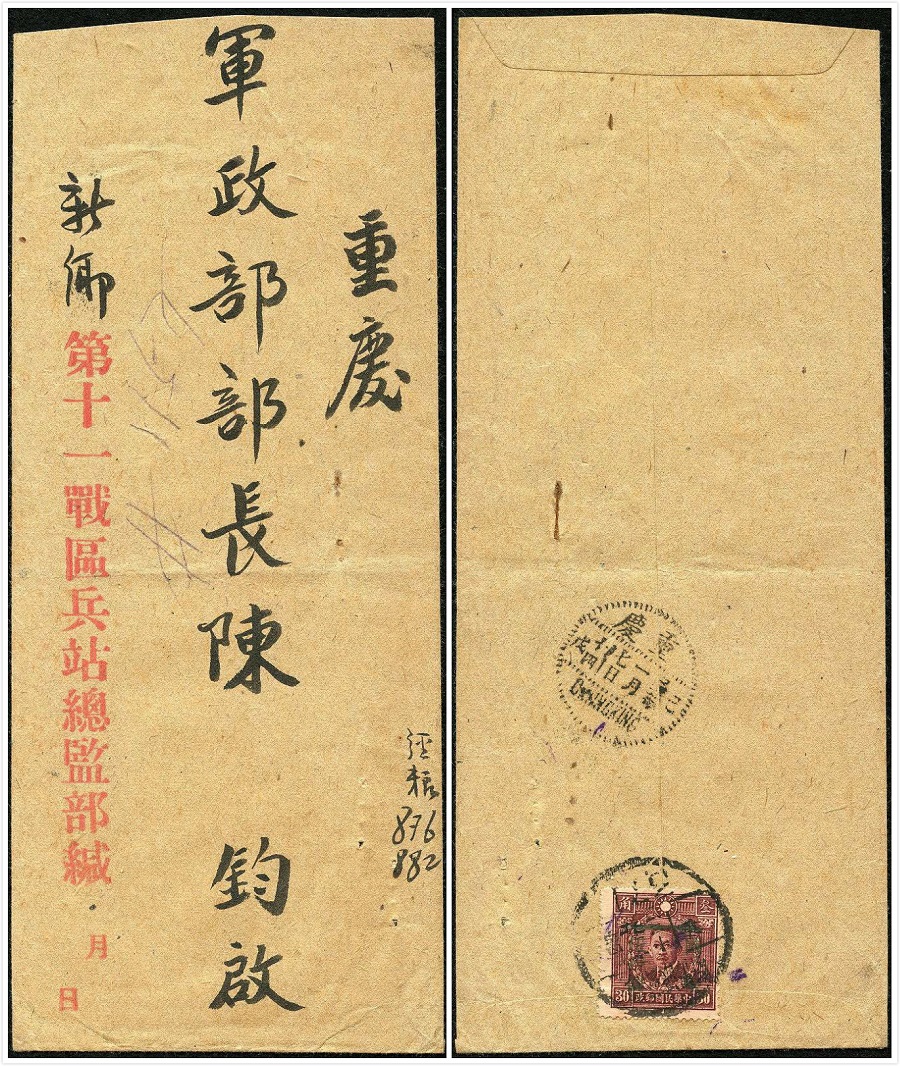 重慶
軍政部部長陳 鈞啟
新鄉
第十一戰區兵站總監部緘
月 日
經糧
876
882
重慶
CHUNGKING
角叁
30
政郵國民華中